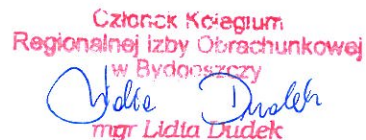 Członek Kolegium
Regionalnej Izby Obrachunkowej
w Bydgoszczy
Lidia Dudek
mgr Lidia Dudek